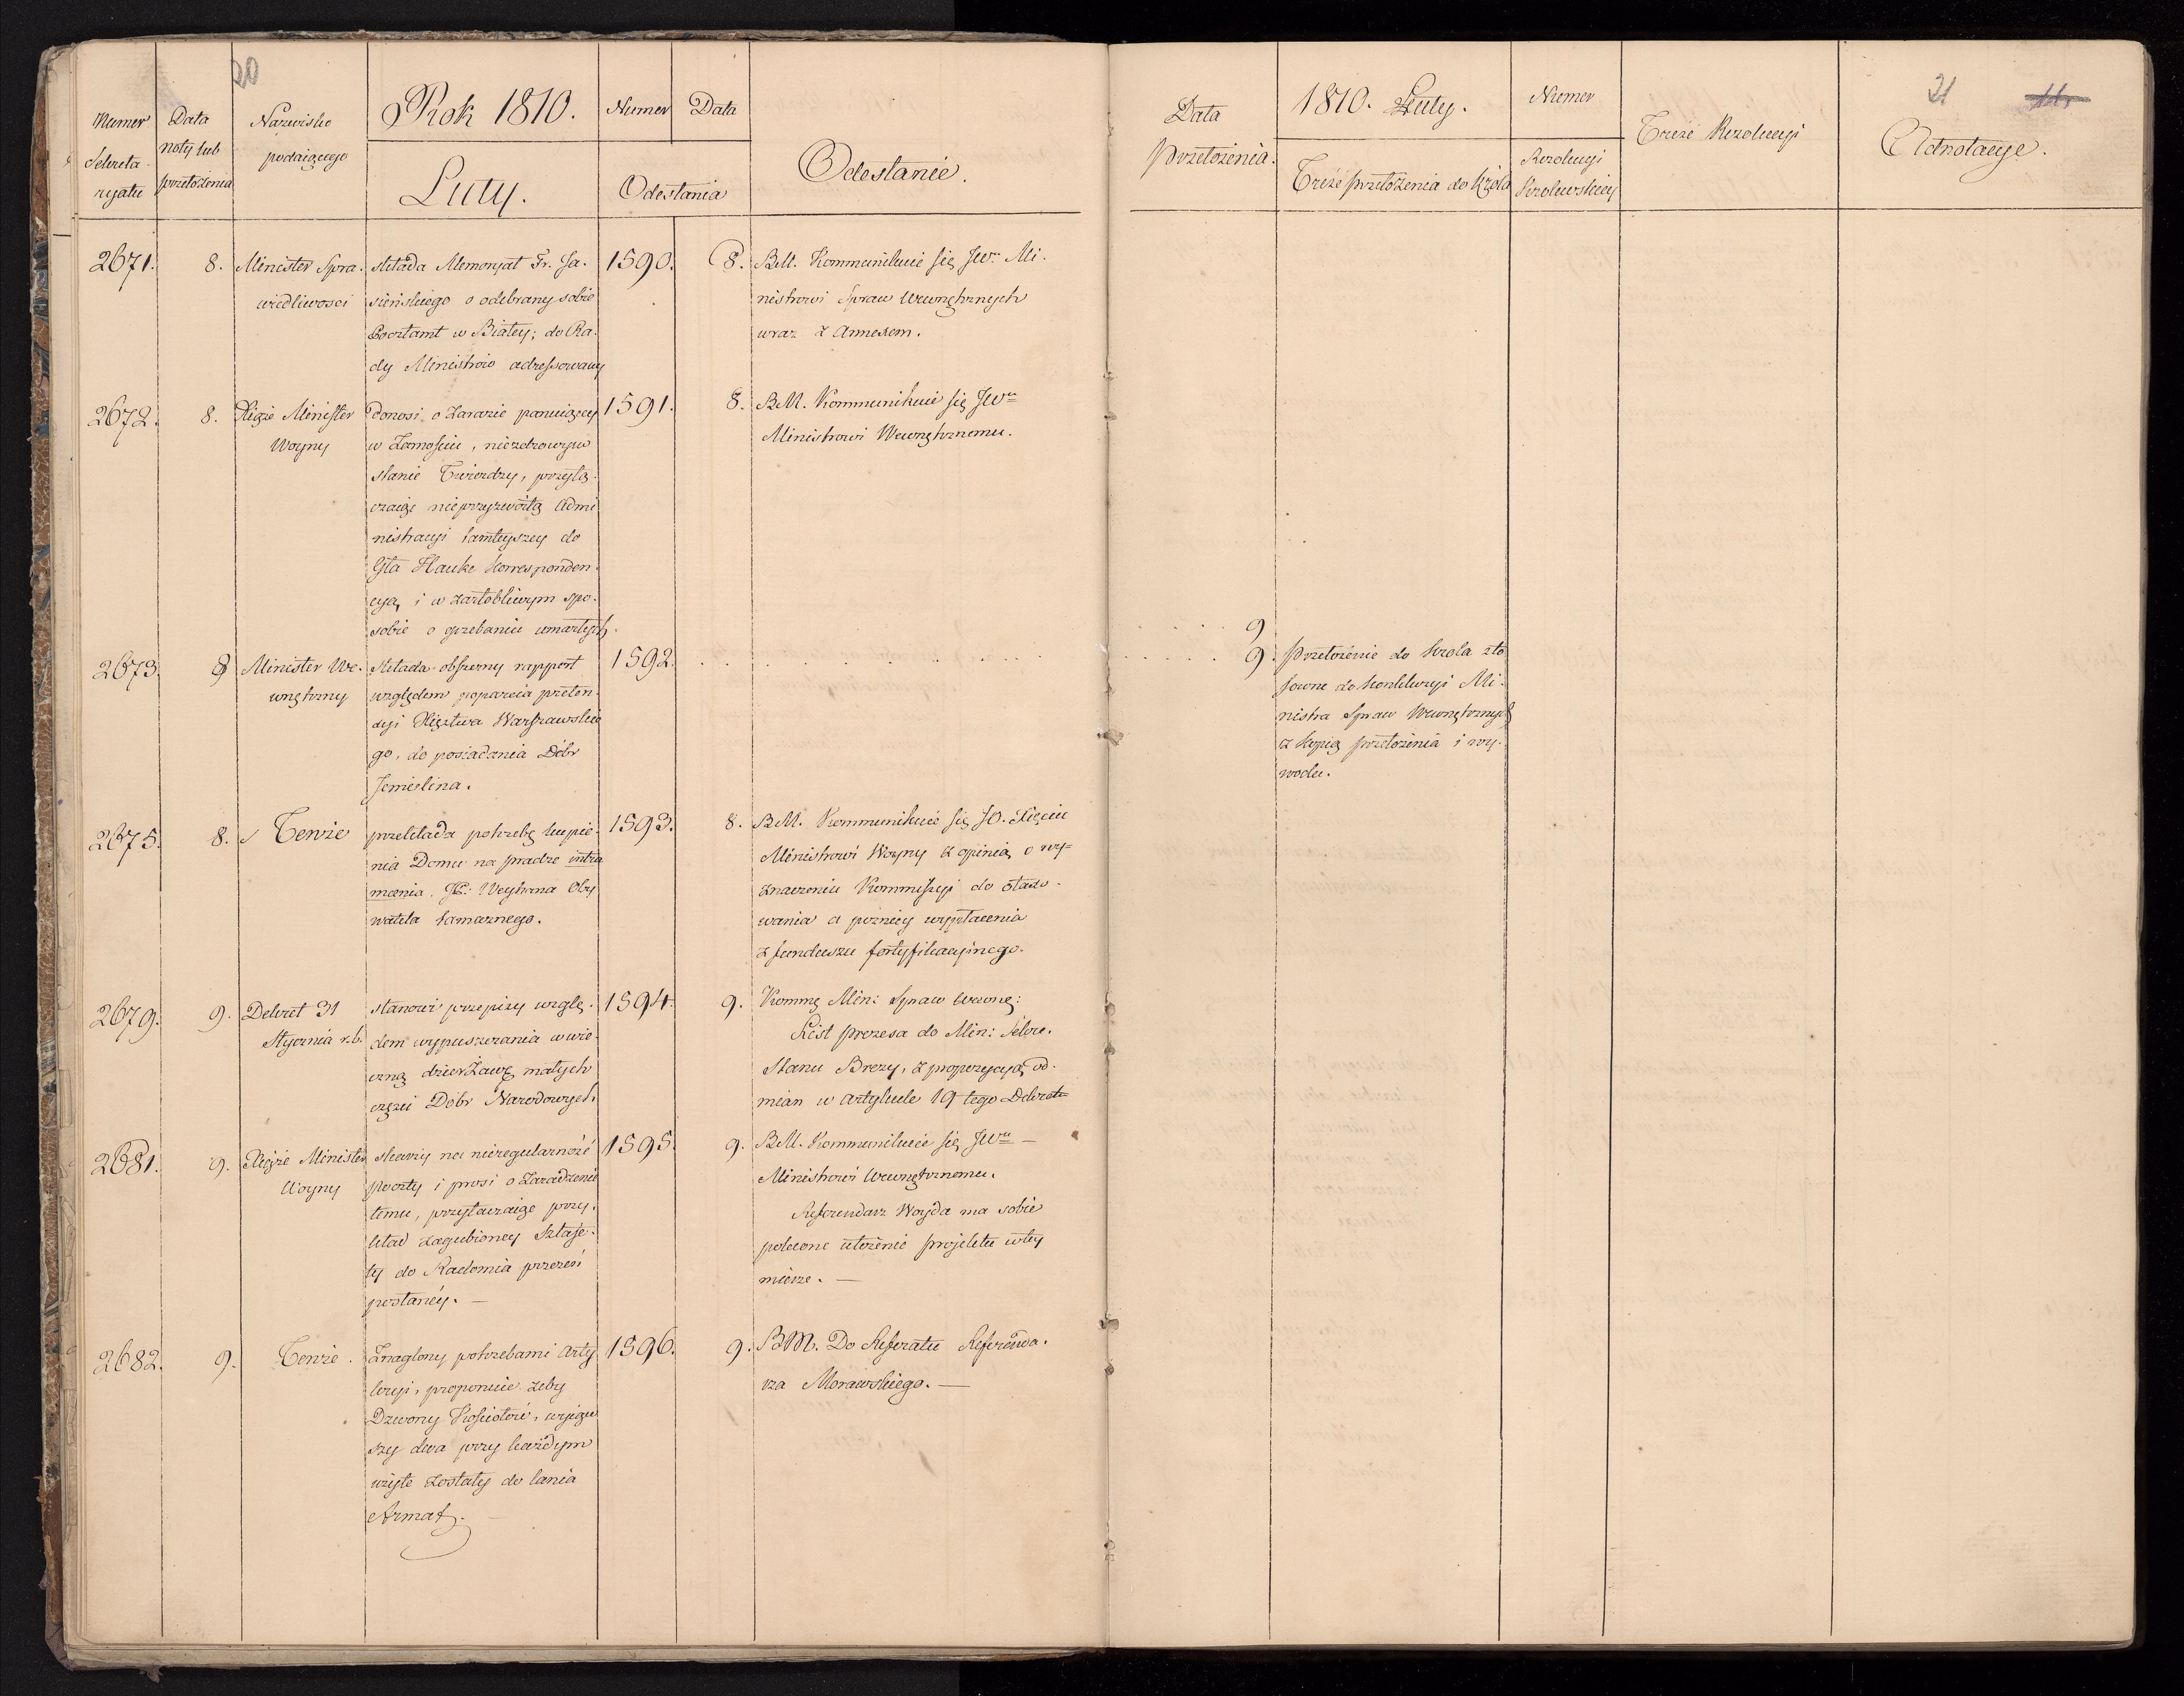 20
Numer
Sekreta
ryatu
Data
noty lub
przełożenia
Nazwisko
podaiącego
Rok 1810.
Luty.
Numer Data
Odesłania
Odesłanie.
2671. 8. Minister Spra.
wiedliwosci
składa Memoryał Fr. Ja.
sieńskiego o odebrany sobie
Pocztamt w Białey; do Ra.
dy Ministrów adressowany
1590. 8.
BM. Kommunikuie się JWu Mi.
nistrowi Spraw Wewnętrznych
wraz z Annexem.
2672. 8. Xiąże Minister
Woyny
donosi o zarazie panuiącey
w Zamościu, niezdrowym
stanie Twierdzy, przyłą
czaiąc nieprzyzwoitą Admi
nistracyi tamteyszey do
Gła Hauke korresponden.
cyą, i w żartobliwym spo.
sobie o grzebaniu umarłych.
1591. 8.
BM. Kommunikuie się JWu
Ministrowi Wewnętrznemu.
2673. 8 Minister We.
wnętrzny
składa obszerny rapport
względem poparcia preten.
dyi Xięztwa Warszawskie
go, do posiadania Dóbr
Jemielina.
1592.
2675. 8. Tenże
przekłada potrzebę kupie.
nia Domu na pradze intra
maenia JP: Weyhrna Oby
watela tamecznego.
1593. 8.
BM. Kommunikuie się JO. Xięciu
Ministrowi Woyny z opinią o wy=
znaczeniu Kommissyi do otaxo.
wania a pozniey wypłacenia
z funduszu fortyfikacyinego.
2679. 9. Dekret 31
Stycznia r.b.
stanowi przepisy wzglę.
dem wypuszczania w wie.
czną dzierżawę małych
części Dóbr Narodowych
1594. 9.
Kommę Min: Spraw Wewnę:
List prezesa do Min: Sekre.
Stanu Brezy, z propozycyą od.
mian w artykule 19 tego Dekretu
2681. 9. Xiąże Minister
Woyny
skarży na nieregularność
poczty i prosi o zaradzenie
temu, przytaczaiąc przy.
kład zagubioney Sztafe.
ty do Radomia przezeń
posłanéy. —
1595. 9.
BM. Kommunikuie się JWu —
Ministrowi Wewnętrznemu.
Referendarz Woyda ma sobie
polecone ułożenie projektu w tey
mierze. —
2682. 9. Tenże.
Znaglony potrzebami Arty
leryi, proponuie żeby
Dzwony Kościołów, wyiąw
szy dwa przy każdym
wzięte zostały do lania
Armat. —
1596. 9.
BM. Do Referatu Referenda.
rza Morawskiego. —
21
Data
Przełożenia.
1810. Luty.
Treść przełożenia do Króla
Numer
Rezolucyi
Królewskiey
Treść Rezolucyi
Adnotacye.
9
9. Przełożenie do Króla sto
sowne do konkluzyi Mi.
nistra Spraw Wewnętrznych
z kopią przełożenia i wy.
wodu.